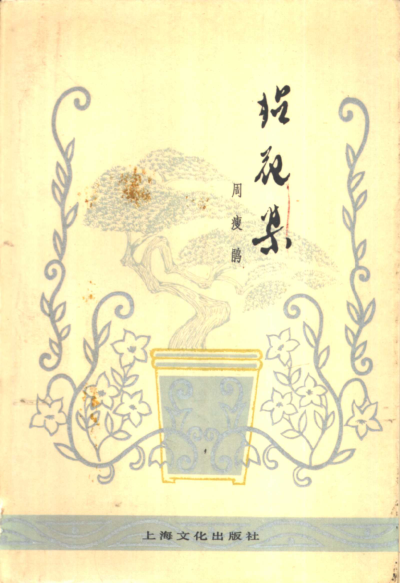 拈花集
周瘦鹃
上海文化出版社